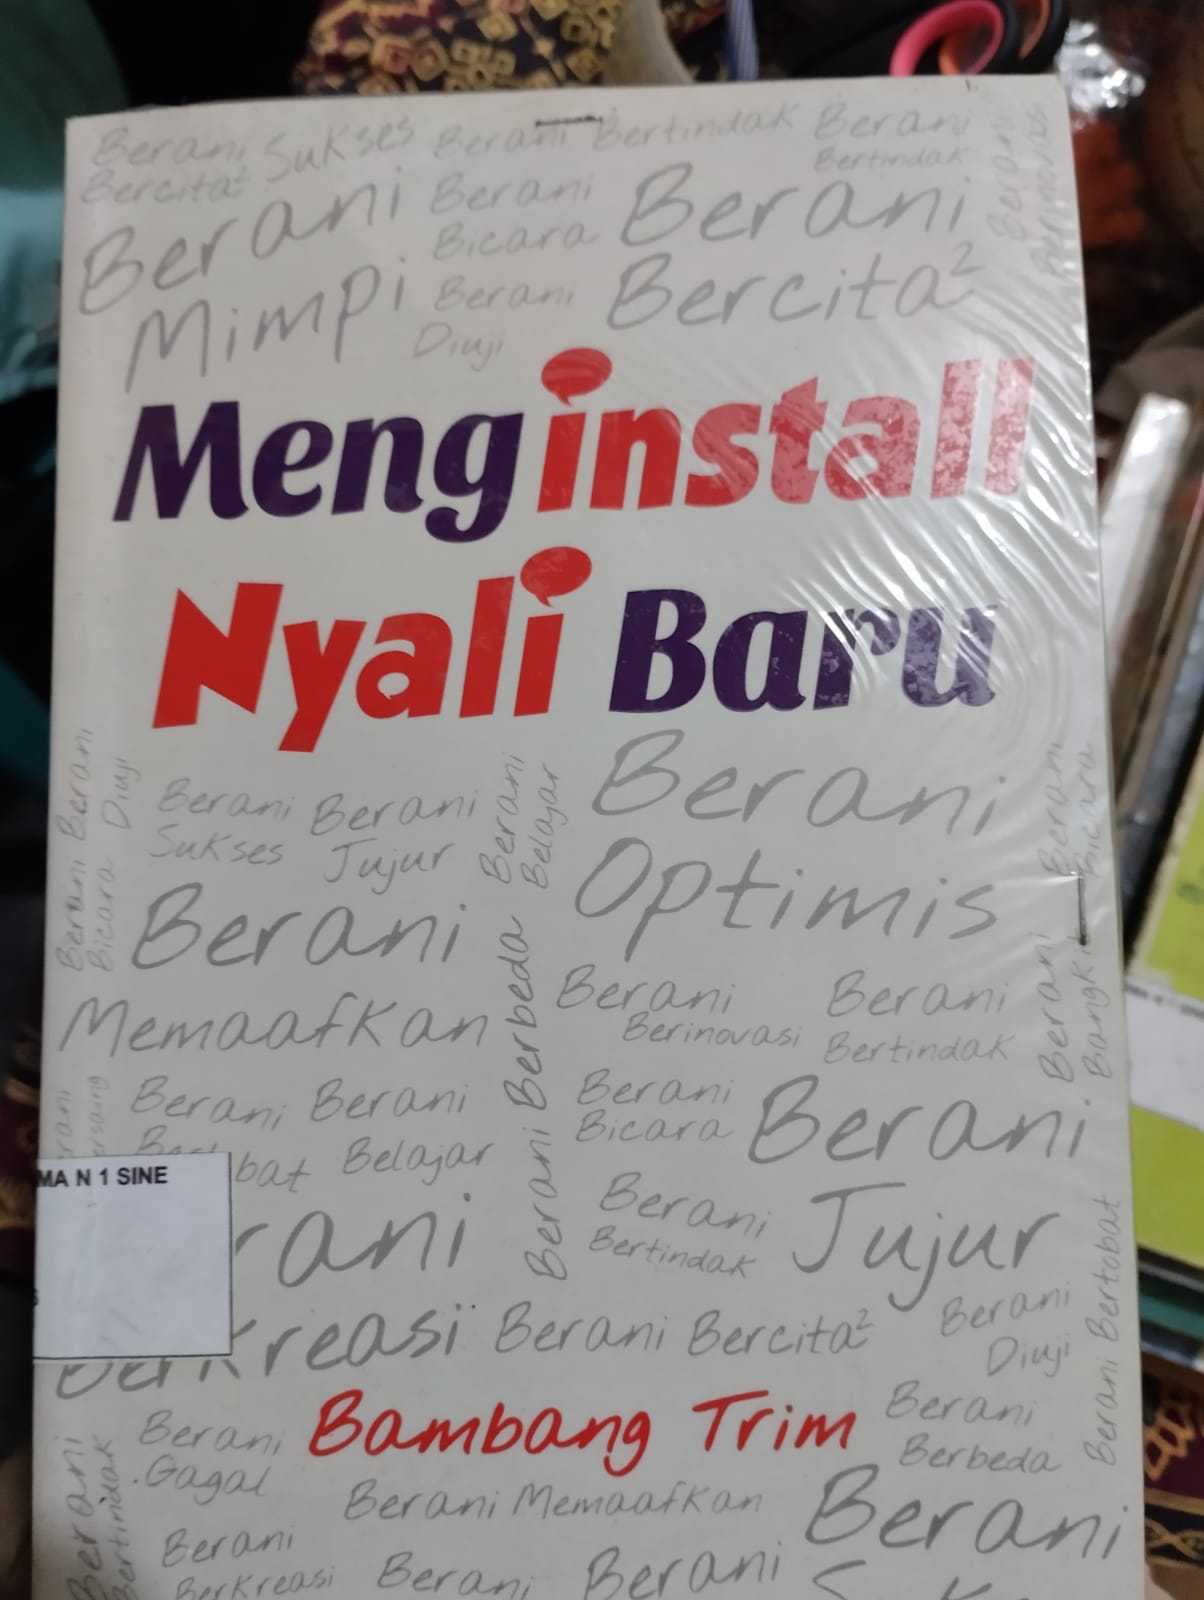 Berani Sukses Berani Bertindak Berani
Bercita² Bertindak
Berani Berani Berani
Bicara
Mimpi Berani Bercita²
Diuji
Menginstall
Nyali Baru
Berani Berani Berani
Sukses Jujur Optimis
Berani Belajar
Berani Diuji
Berani Bicara
Berani Bicara
Berani
Memaafkan
Berani Berbeda
Berani Berani
Berinovasi Bertindak
Berani Bangkit
Berani Berani Berani Berani
Belajar Bicara Jujur
MA N 1 SINE
Berani
Bertindak
Berani Bertobat
Berkreasi Berani Bercita² Berani
Diuji
Berani Bambang Trim Berani
Gagal Berbeda
Berani Bertindak
Berani Memaafkan Berani
Berani
Berkreasi Berani Berani